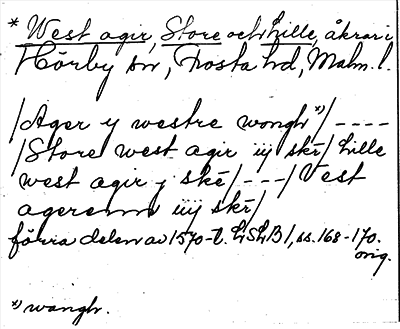 * West agir, Store och Lille, åkrar i
Hörby sn, Frosta hd, Malm. l.
/Ager y westre wongh *)/----
/Store west agir iij skr/ Lille
west agir j skr/---/Vest
agerenn iiij skr/
förra delen av 1570-t. LSLB 1, ss. 168-170.
orig.
*) wangh.